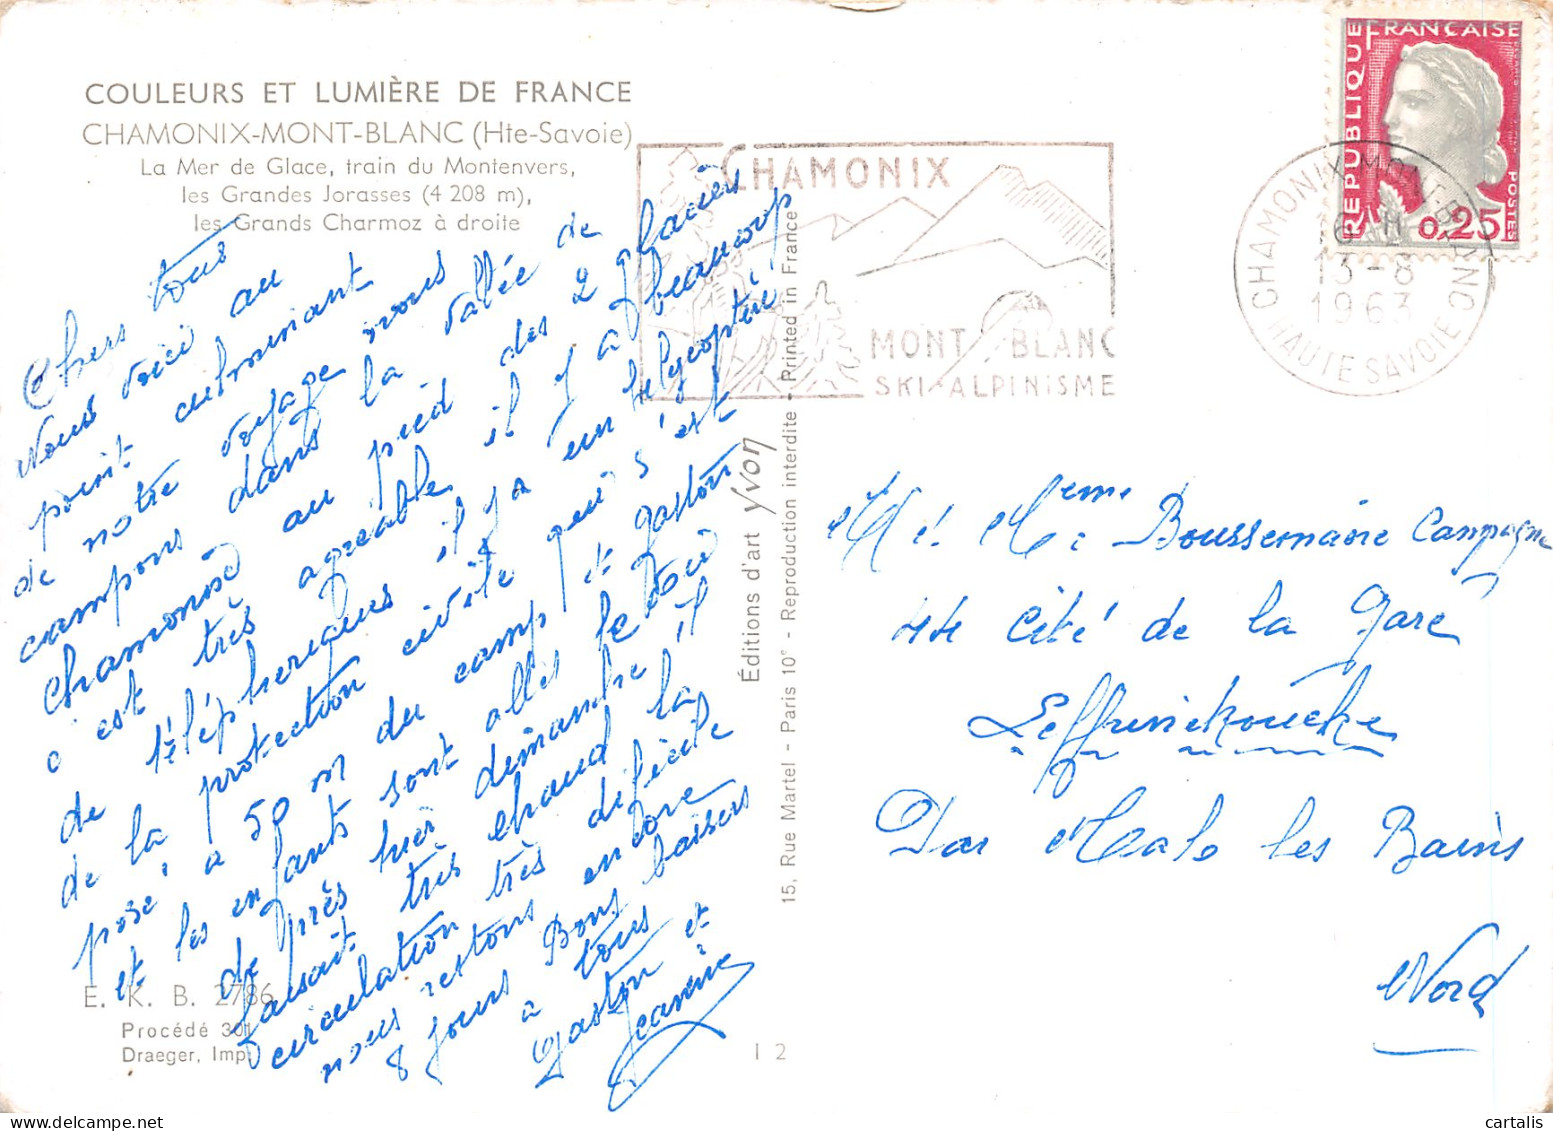 COULEURS ET LUMIÈRE DE FRANCE
CHAMONIX-MONT-BLANC (Hte-Savoie)
La Mer de Glace, train du Montenvers,
les Grandes Jorasses (4 208 m),
les Grands Charmoz à droite
Chers tous
Nous voici au
point culminant
de notre voyage nous
campons dans la vallée de
Chamonix au pied des 2 glaciers
c'est très agréable il y a beaucoup
de téléphériques il y a un hélycoptère
de la protection civile qui s'est
posé, a 50 m du camp et gaston
et les enfants sont allés le voir
de près hier dimanche il
faisait très chaud la
circulation très dificile
nous restons encore
8 jours Bons baisers
a tous
gaston et
Jeannine
E. K. B. 2786
Procédé 301
Draeger, Imp.
I 2
Éditions d'art Yvon
15, Rue Martel - Paris 10e - Reproduction interdite - Printed in France
CHAMONIX
MONT BLANC
SKI-ALPINISME
RÉPUBLIQUE FRANÇAISE
POSTES
0,25
CHAMONIX-MONT-BLANC
16 H
13-8
1963
HAUTE SAVOIE
M. Mme Boussemaire Campagne
44 Cité de la gare
Leffrinckoucke
Par Malo les Bains
Nord
cartalis